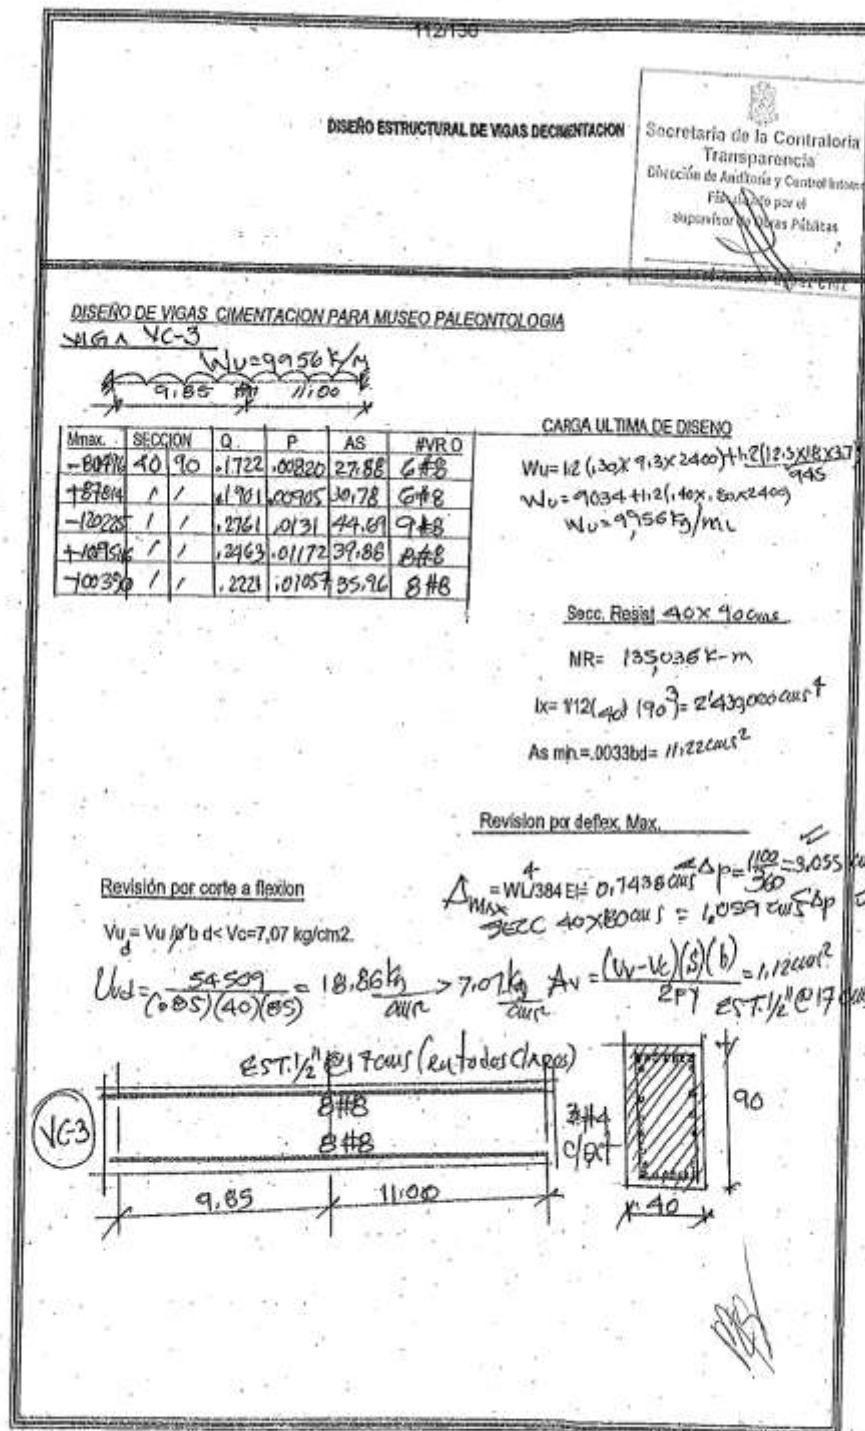 112/130
DISEÑO ESTRUCTURAL DE VIGAS DECIMENTACION
Secretaría de la Contraloría
Transparencia
Dirección de Auditoría y Control Interno
por el
Supervisor de Obras Públicas
DISEÑO DE VIGAS CIMENTACION PARA MUSEO PALEONTOLOGIA
VIGA VC-3
WU=9956 K/M
9.85 11.00
Mmax. SECCION Q P AS #VR O
-80496 40 90 .1722 .00820 27.88 6#8
+87814 / / .1901 .00905 30.78 6#8
-120225 / / .2761 .0131 44.69 9#8
+109516 / / .2463 .01172 39.86 8#8
-100390 / / .2221 .01057 35.96 8#8
CARGA ULTIMA DE DISENO
WU=1.2 (.30)(9.3x2400)+1.2(12.3x18x3.7)
945
WU=9034+1.2(.40x.80x2400)
WU=9,956 Kg/mL
Secc. Resist 40X90cms
MR= 135,036 K-m
Ix= 1/12(40) (90³)= 2'430,000 cms⁴
As min.=.0033bd= 11.22cms²
Revision por deflex. Max.
Δmax =WL⁴/384 EI= 0.7438 cms <Δp=1100/360=3.055
SECC 40X80cms = 1.059 cms<Δp
Revisión por corte a flexion
Vu d = Vu /ø b d< Vc=7,07 kg/cm2.
Uud= 54509/(.85)(40)(85) = 18.86kg/cm² > 7.07kg/cm² Av = (Uv-Uc)(S)(b)/2FY =1.12cms²
EST.1/2"@17cms
EST.1/2"@17cms (en todos claros)
8#8
8#8
VC-3
3#4
90
9.85 11.00
40